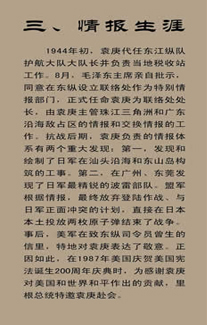 三、情报生涯
1944年初，袁庚代任东江纵队
护航大队大队长并负责当地税收站
工作。8月，毛泽东主席亲自批示，
同意在东纵设立联络处作为特别情
报部门，正式任命袁庚为联络处处
长，由袁庚主管珠江三角洲和广东
沿海敌占区的情报和交换情报的工
作。抗战后期，袁庚负责的情报体
系有两个重大发现：第一，发现和
绘制了日军在汕头沿海和东山岛构
筑的工事。第二，在广州、东莞发
现了日军最精锐的波雷部队。盟军
根据情报，最终放弃登陆作战、与
日军正面冲突的计划，直接在日本
本土投放两枚原子弹结束了战争。
事后，美军在致东纵司令员曾生的
信里，特地对袁庚表达了敬意。正
因如此，在1987年美国庆贺美国宪
法诞生200周年庆典时，为感谢袁庚
对美国和世界和平作出的贡献，里
根总统特邀袁庚赴会。